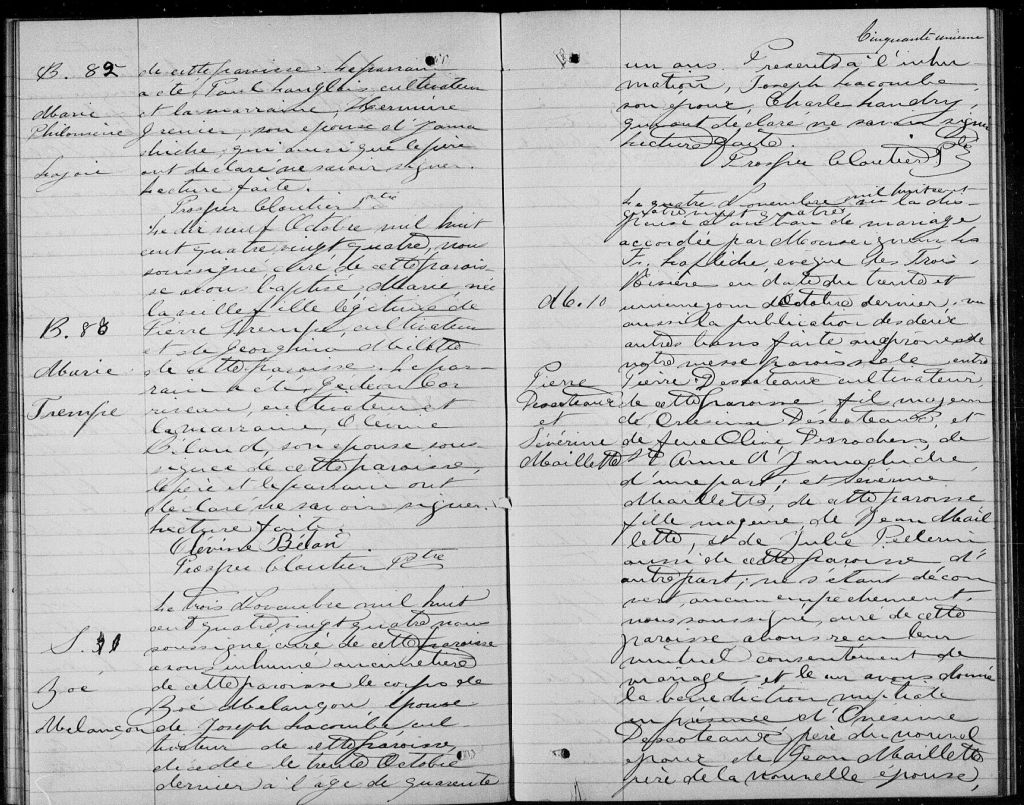 B. 82
Marie
Philomène
Lajoie
de cette paroisse. Le parrain
a été Paul Langlois cultivateur
et la marraine, Hermine
Grenier, son épouse d'Yama
chiche, qui ainsi que le père
ont déclaré ne savoir signer.
Lecture faite.
Prosper Cloutier Ptre
B. 83
Marie
Trempe
Le dix neuf Octobre mil huit
cent quatre vingt quatre, nous
soussigné curé de cette parois-
se avons baptisé Marie, née
la veille fille légitime de
Pierre Trempe, cultivateur
et de Georgina Milette
de cette paroisse. Le par-
rain a été Gédéon Cor
riveau, cultivateur et
la marraine,
Béland, son épouse sous-
signée de cette paroisse,
le père et le parrain ont
déclaré ne savoir signer.
Lecture faite.
Elévine Béland
Prosper Cloutier Ptre
S. 31
Zoé
Melançon
Le trois Novembre mil huit
cent quatre vingt quatre nous
soussigné curé de cette paroisse
avons inhumé au cimetière
de cette paroisse le corps de
Zoé Melançon, épouse
de Joseph Lacombe cul-
tivateur de cette paroisse,
décédée le trente Octobre
dernier à l'âge de quarante
Cinquante unième
un ans. Présents à l'inhu
mation, Joseph Lacombe
son époux, Charle Landry,
qui ont déclaré ne savoir signer
Lecture faite.
Prosper Cloutier Ptre
M. 10
Pierre
Desseteaux
et
Sévérine
Maillette
Le quatre Novembre mil huit cent
quatre vingt quatre, vu la dis-
pense d'un ban de mariage
accordée par Monseigneur Ls
Fs. Laflèche, évêque des Trois-
Rivière en date du trente et
unième jour d'Octobre dernier, vu
aussi la publication des deux
autres bans faite au prône de
notre messe paroissiale entre
Pierre Desseteaux cultivateur
de cette paroisse fils majeur
de Onesime Desseteaux, et
de feue Olive Desrochers, de
Ste Anne d'Yamachiche,
d'une part; et Séverine
Maillette, de cette paroisse
fille majeure de Jean Mail-
lette, et de Julie Pelerin
aussi de cette paroisse d'
autre part; ne s'étant décou
vert aucun empêchement,
nous soussigné, curé de cette
paroisse avons reçu leur
mutuel consentement de
mariage et leur avons donné
la bénédiction nuptiale
en présence d'Onesime
Desseteaux, père du nouvel
époux, de Jean Maillette
père de la nouvelle épouse,